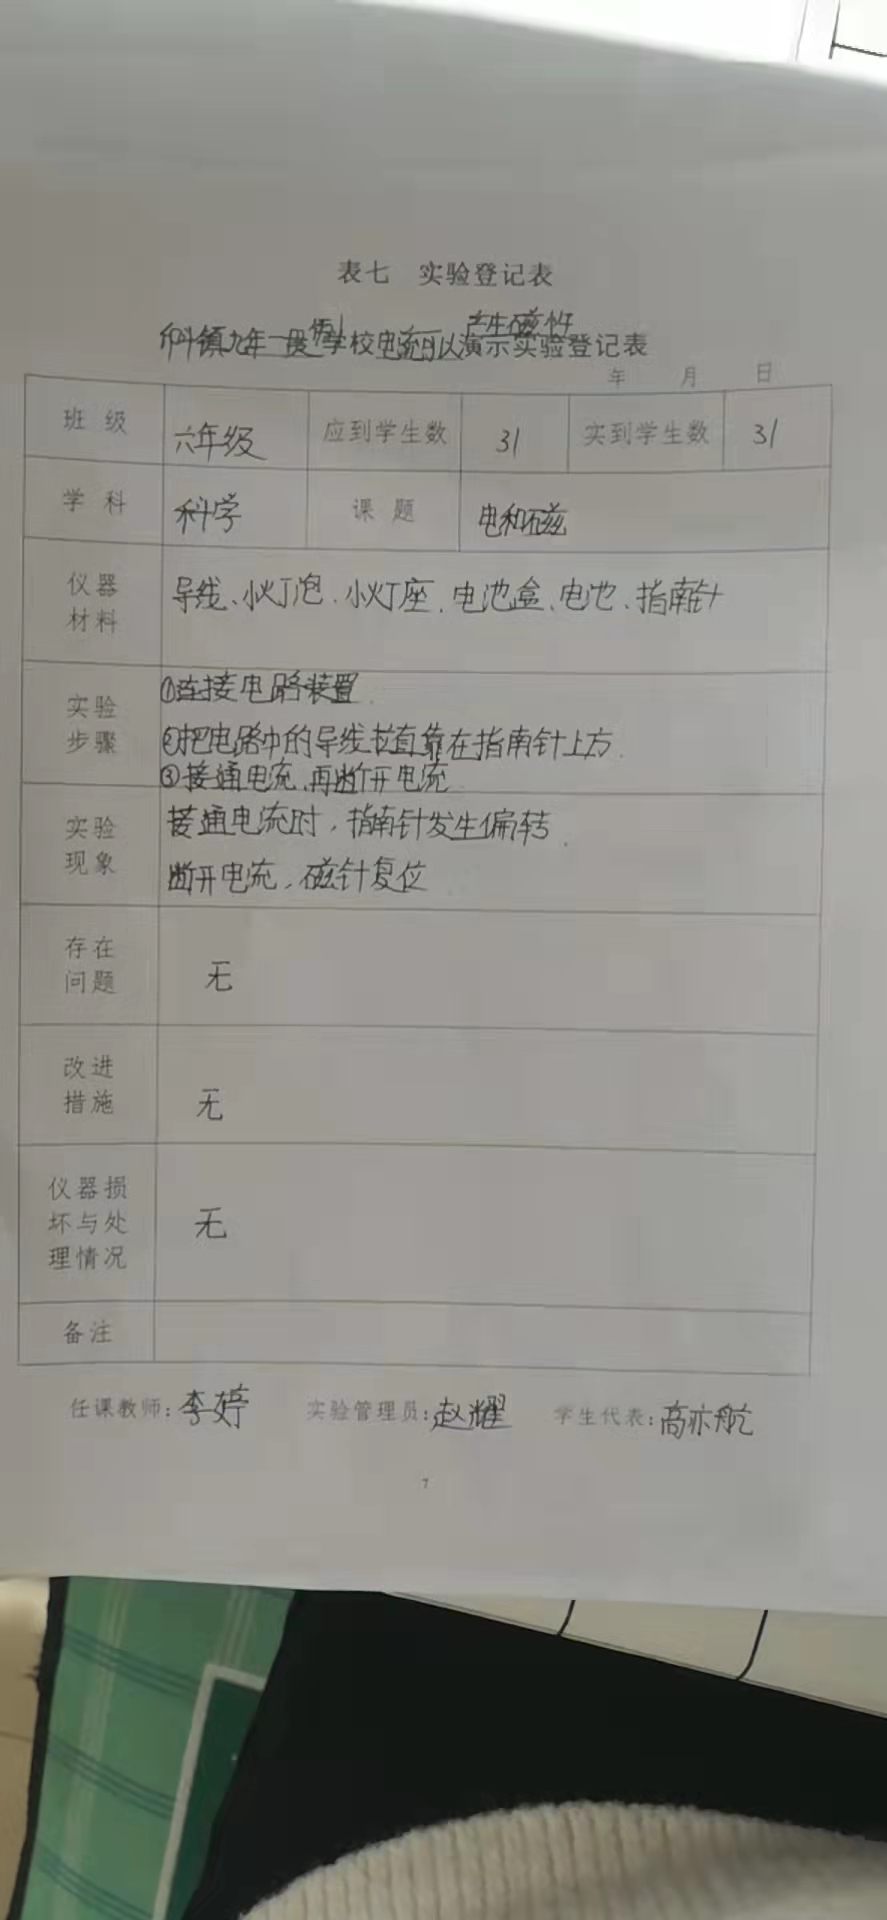 表七 实验登记表
印斗镇九年一段制学校电流可以产生磁性演示实验登记表
年 月 日
班级 六年级 应到学生数 31 实到学生数 31
学科 科学 课题 电和磁
仪器材料 导线、小灯泡、小灯座、电池盒、电池、指南针
实验步骤 ①连接电路装置
②把电路中的导线拉直靠在指南针上方.
③接通电流,再断开电流
实验现象 接通电流时,指南针发生偏转.
断开电流,磁针复位
存在问题 无
改进措施 无
仪器损坏与处理情况 无
备注
任课教师:李婷 实验管理员:赵耀 学生代表:高亦航
7